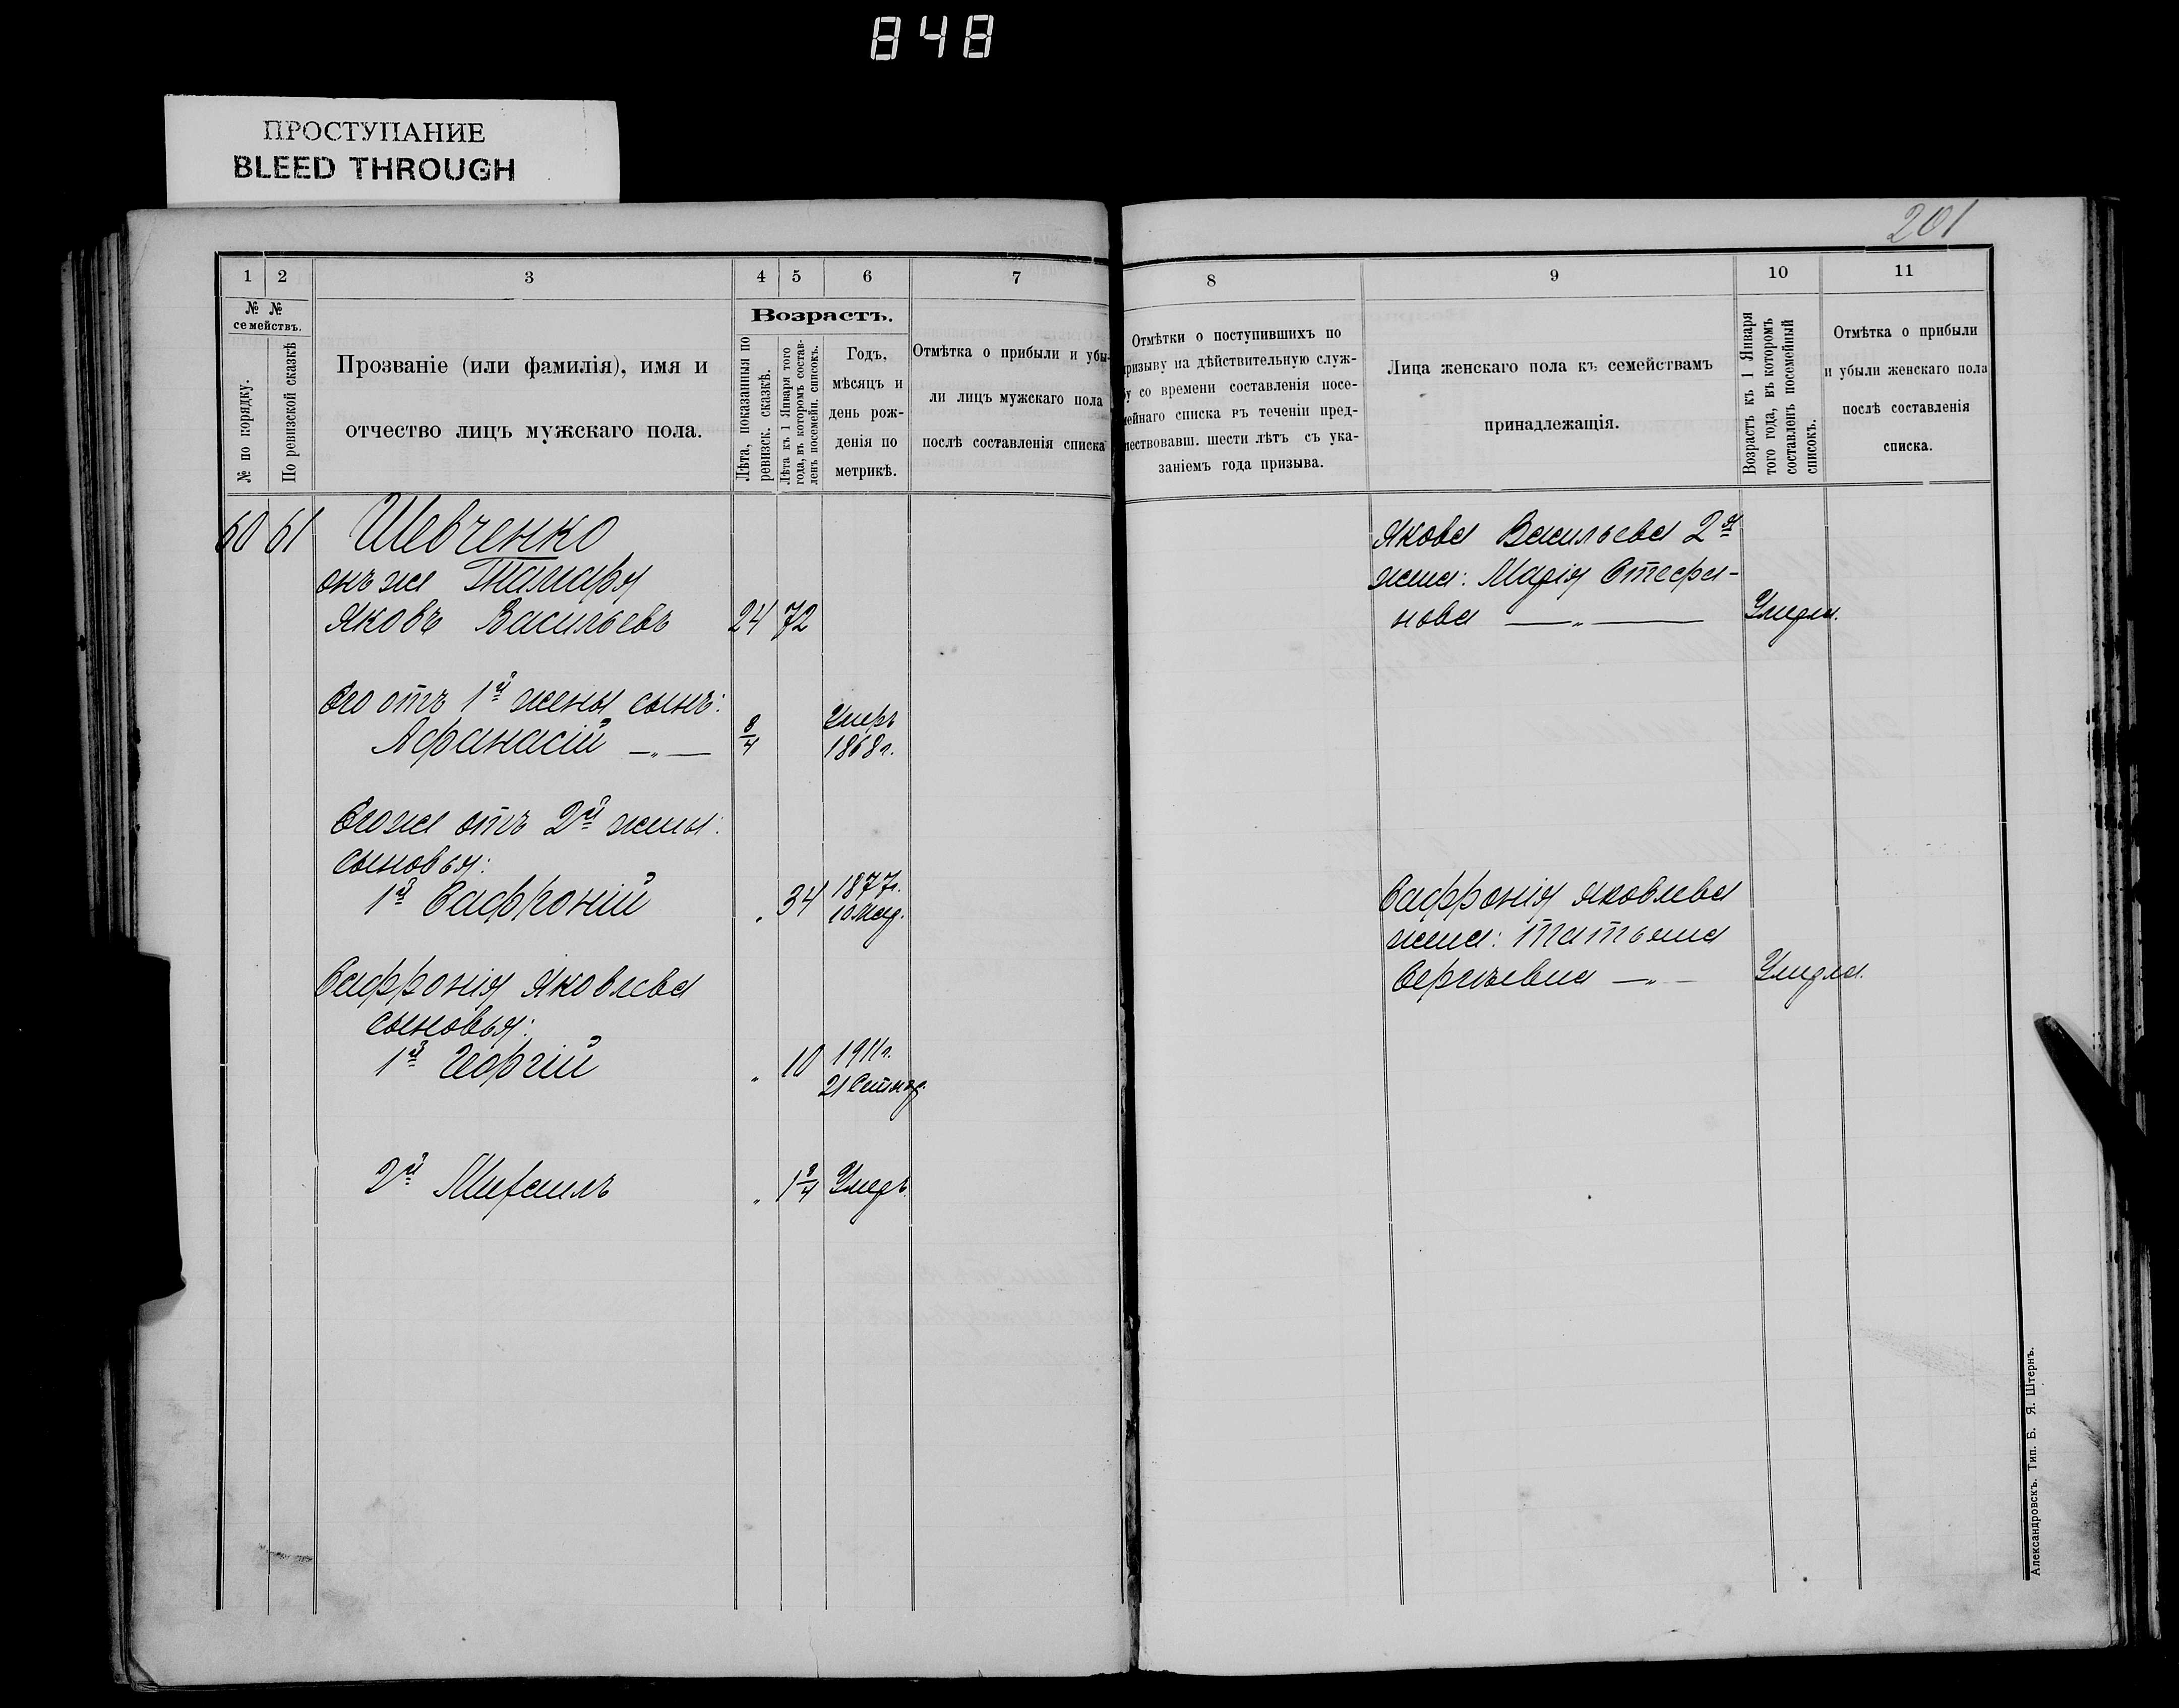 848
ПРОСТУПАНИЕ
BLEED THROUGH
201
1 2 3 4 5 6 7
№ №
семействъ.
№ по порядку.
По ревизской сказкѣ
Прозваніе (или фамилія), имя и
отчество лицъ мужскаго пола.
Возрастъ.
Лѣта, показанныя по
ревизск. сказкѣ.
Лѣта къ 1 Января того
года, въ которомъ состав-
ленъ посемейн. списокъ.
Годъ,
мѣсяцъ и
день рож-
денія по
метрикѣ.
Отмѣтка о прибыли и убы-
ли лицъ мужскаго пола
послѣ составленія списка
8 9 10 11
Отмѣтки о поступившихъ по
призыву на дѣйствительную служ-
бу со времени составленія посе-
мейнаго списка въ теченіи пред-
шествовавш. шести лѣтъ съ ука-
заніемъ года призыва.
Лица женскаго пола къ семействамъ
принадлежащія.
Возрастъ къ 1 Января
того года, въ которомъ
составленъ посемейный
списокъ.
Отмѣтка о прибыли
и убыли женскаго пола
послѣ составленія
списка.
60 61 Шевченко
онъ же
Яковъ Васильевъ 24 72
Его отъ 1й жены сынъ:
Афанасій —„— 8/4 Умеръ
1868 г.
Его же отъ 2й жены:
сыновья:
1й Сафроній „ 34 1877 г.
10
Сафронія Яковлева
сыновья:
1й Георгій „ 10 1911 г.
21
2й Михаилъ „ 1 Умеръ
Якова Васильева 2я
жена: Марія Стефа-
нова —„— Умерла.
Сафронія Яковлева
жена: Татьяна
Сергѣевна —„— Умерла.
Александровскъ. Тип. Б. Я. Штернъ.